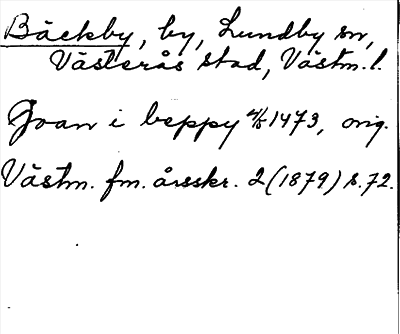 Bäckby, by, Lundby sn,
Västerås stad, Västm. l.
Joan i beppy 4/5 1473, orig.
Västm. fm. årsskr. 2 (1879) s. 72.